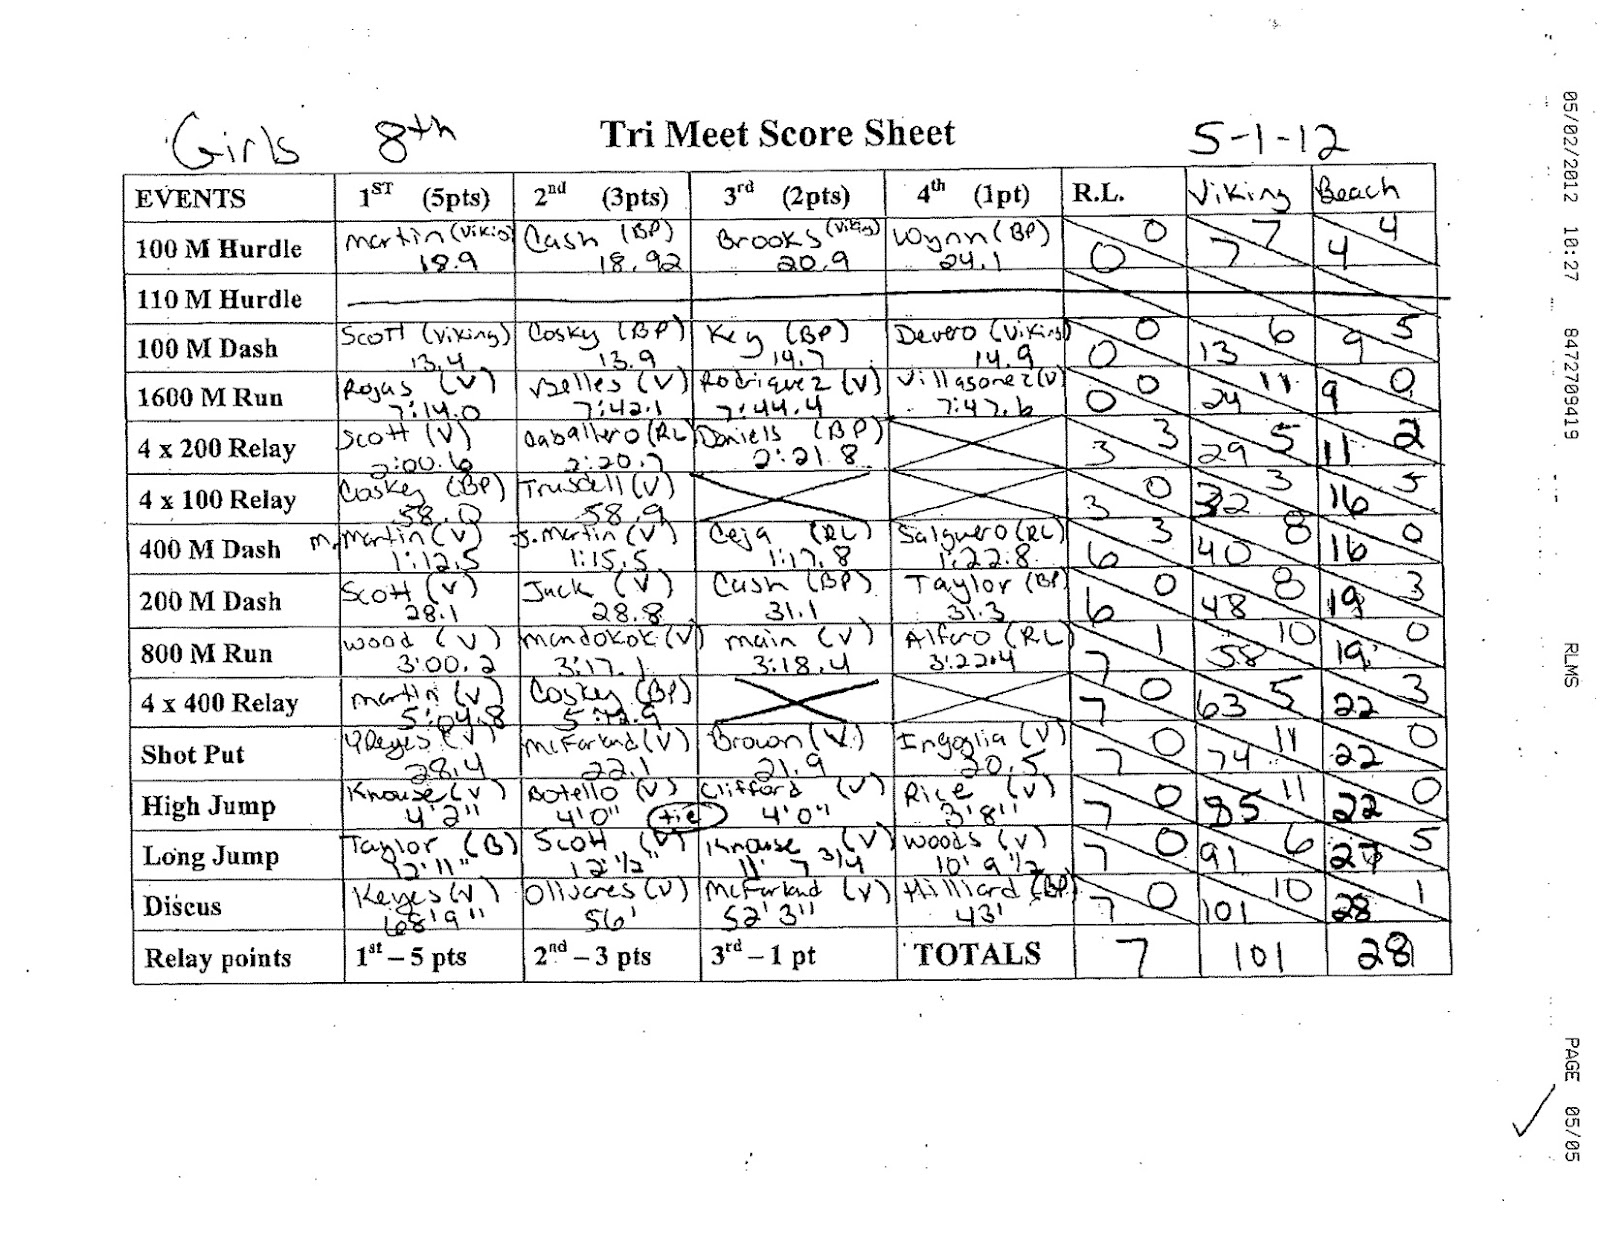 Girls 8th Tri Meet Score Sheet 5-1-12
EVENTS 1ST (5pts) 2nd (3pts) 3rd (2pts) 4th (1pt) R.L. Viking Beach
Martin (Viking) Cash (BP) Brooks (Viking) Wynn (BP) 0 7 4
100 M Hurdle 18.9 18.92 20.9 24.1 0 7 4
110 M Hurdle
Scott (Viking) Cosky (BP) Key (BP) Devero (Viking) 0 6 5
100 M Dash 13.4 13.9 14.7 14.9 0 13 9
Rojas (V) Belles (V) Rodriquez (V) Villasonez (V) 0 11 0
1600 M Run 7:14.0 7:42.1 7:44.4 7:47.6 0 24 9
Scott (V) Caballero (RL) Daniels (BP) 3 5 2
4 x 200 Relay 2:00.6 2:20.7 2:21.8 3 29 11
Coskey (BP) Trusdell (V) 0 3 5
4 x 100 Relay 58.0 58.9 3 32 16
M. Martin (V) J. Martin (V) Ceja (RL) Salguero (RL) 3 8 0
400 M Dash 1:12.5 1:15.5 1:17.8 1:22.8 6 40 16
Scott (V) Jack (V) Cash (BP) Taylor (BP) 0 8 3
200 M Dash 28.1 28.8 31.1 31.3 6 48 19
Wood (V) Mandokok (V) Main (V) Alfaro (RL) 1 10 0
800 M Run 3:00.2 3:17.1 3:18.4 3:22.4 7 58 19
Martin (V) Coskey (BP) 0 5 3
4 x 400 Relay 5:04.8 7 63 22
(V) McFarland (V) Brown (V) Ingoglia (V) 0 11 0
Shot Put 28.4 22.1 21.9 20.5 7 74 22
Knouse (V) Botello (V) Clifford (V) Rice (V) 0 11 0
High Jump 4'2" 4'0" tie 4'0" 3'8" 7 85 22
Taylor (B) Scott (V) Knouse (V) Woods (V) 0 6 5
Long Jump 12'11" 12'1/2" 11' 7 3/4 10' 9 1/2 7 91 27
Keyes (V) Olivares (V) McFarland (V) Hilliard (BP) 0 10 1
Discus 68'9" 56' 52'3" 43' 7 101 28
Relay points 1st – 5 pts 2nd – 3 pts 3rd – 1 pt TOTALS 7 101 28
05/02/2012 10:27 8472709419 RLMS PAGE 05/05